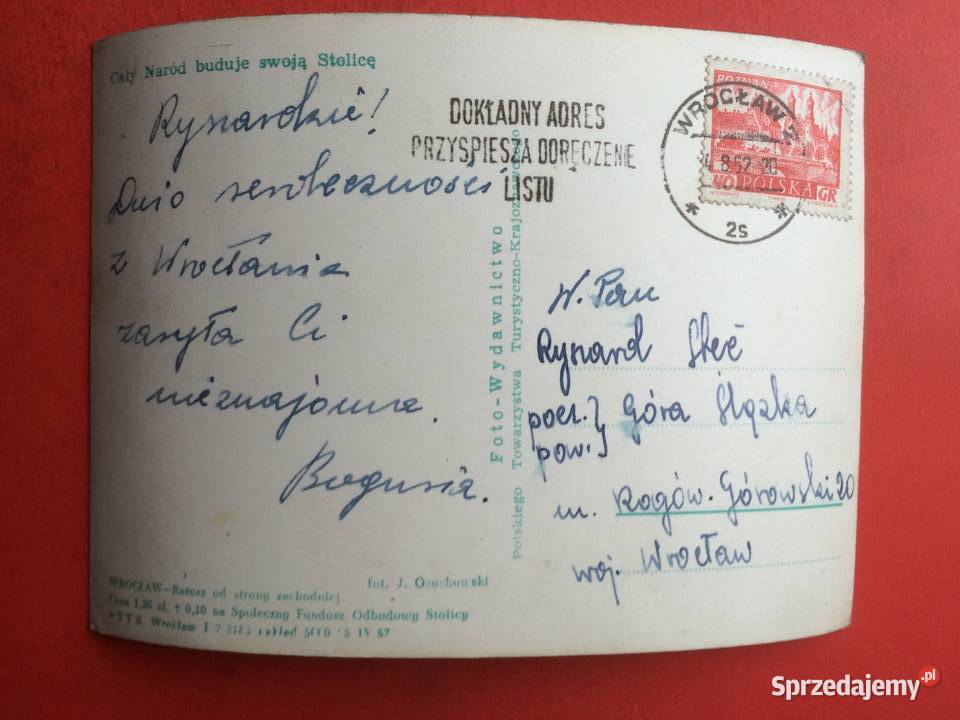 Cały Naród buduje swoją Stolicę
Rysardzie!
Dużo serdeczności
z Wrocławia
zasyła Ci
nieznajoma.
Bogusia.
DOKŁADNY ADRES
PRZYSPIESZA DORĘCZENIE
LISTU
POZNAŃ
WROCŁAW 2
8.62 20
2s
40 POLSKA GR
Foto-Wydawnictwo
Polskiego Towarzystwa Turystyczno-Krajoznawczego
W. Pan
Rysard Steć
pocz.} Góra Śląska
pow.}
m. Rogów-Górowski 20
woj. Wrocław
WROCŁAW—Ratusz od strony zachodniej
fot. J. Osuchowski
Cena 1,30 zł. + 0,10 na Społeczny Fundusz Odbudowy Stolicy
PTTK Wrocław IV 57
Sprzedajemy.pl